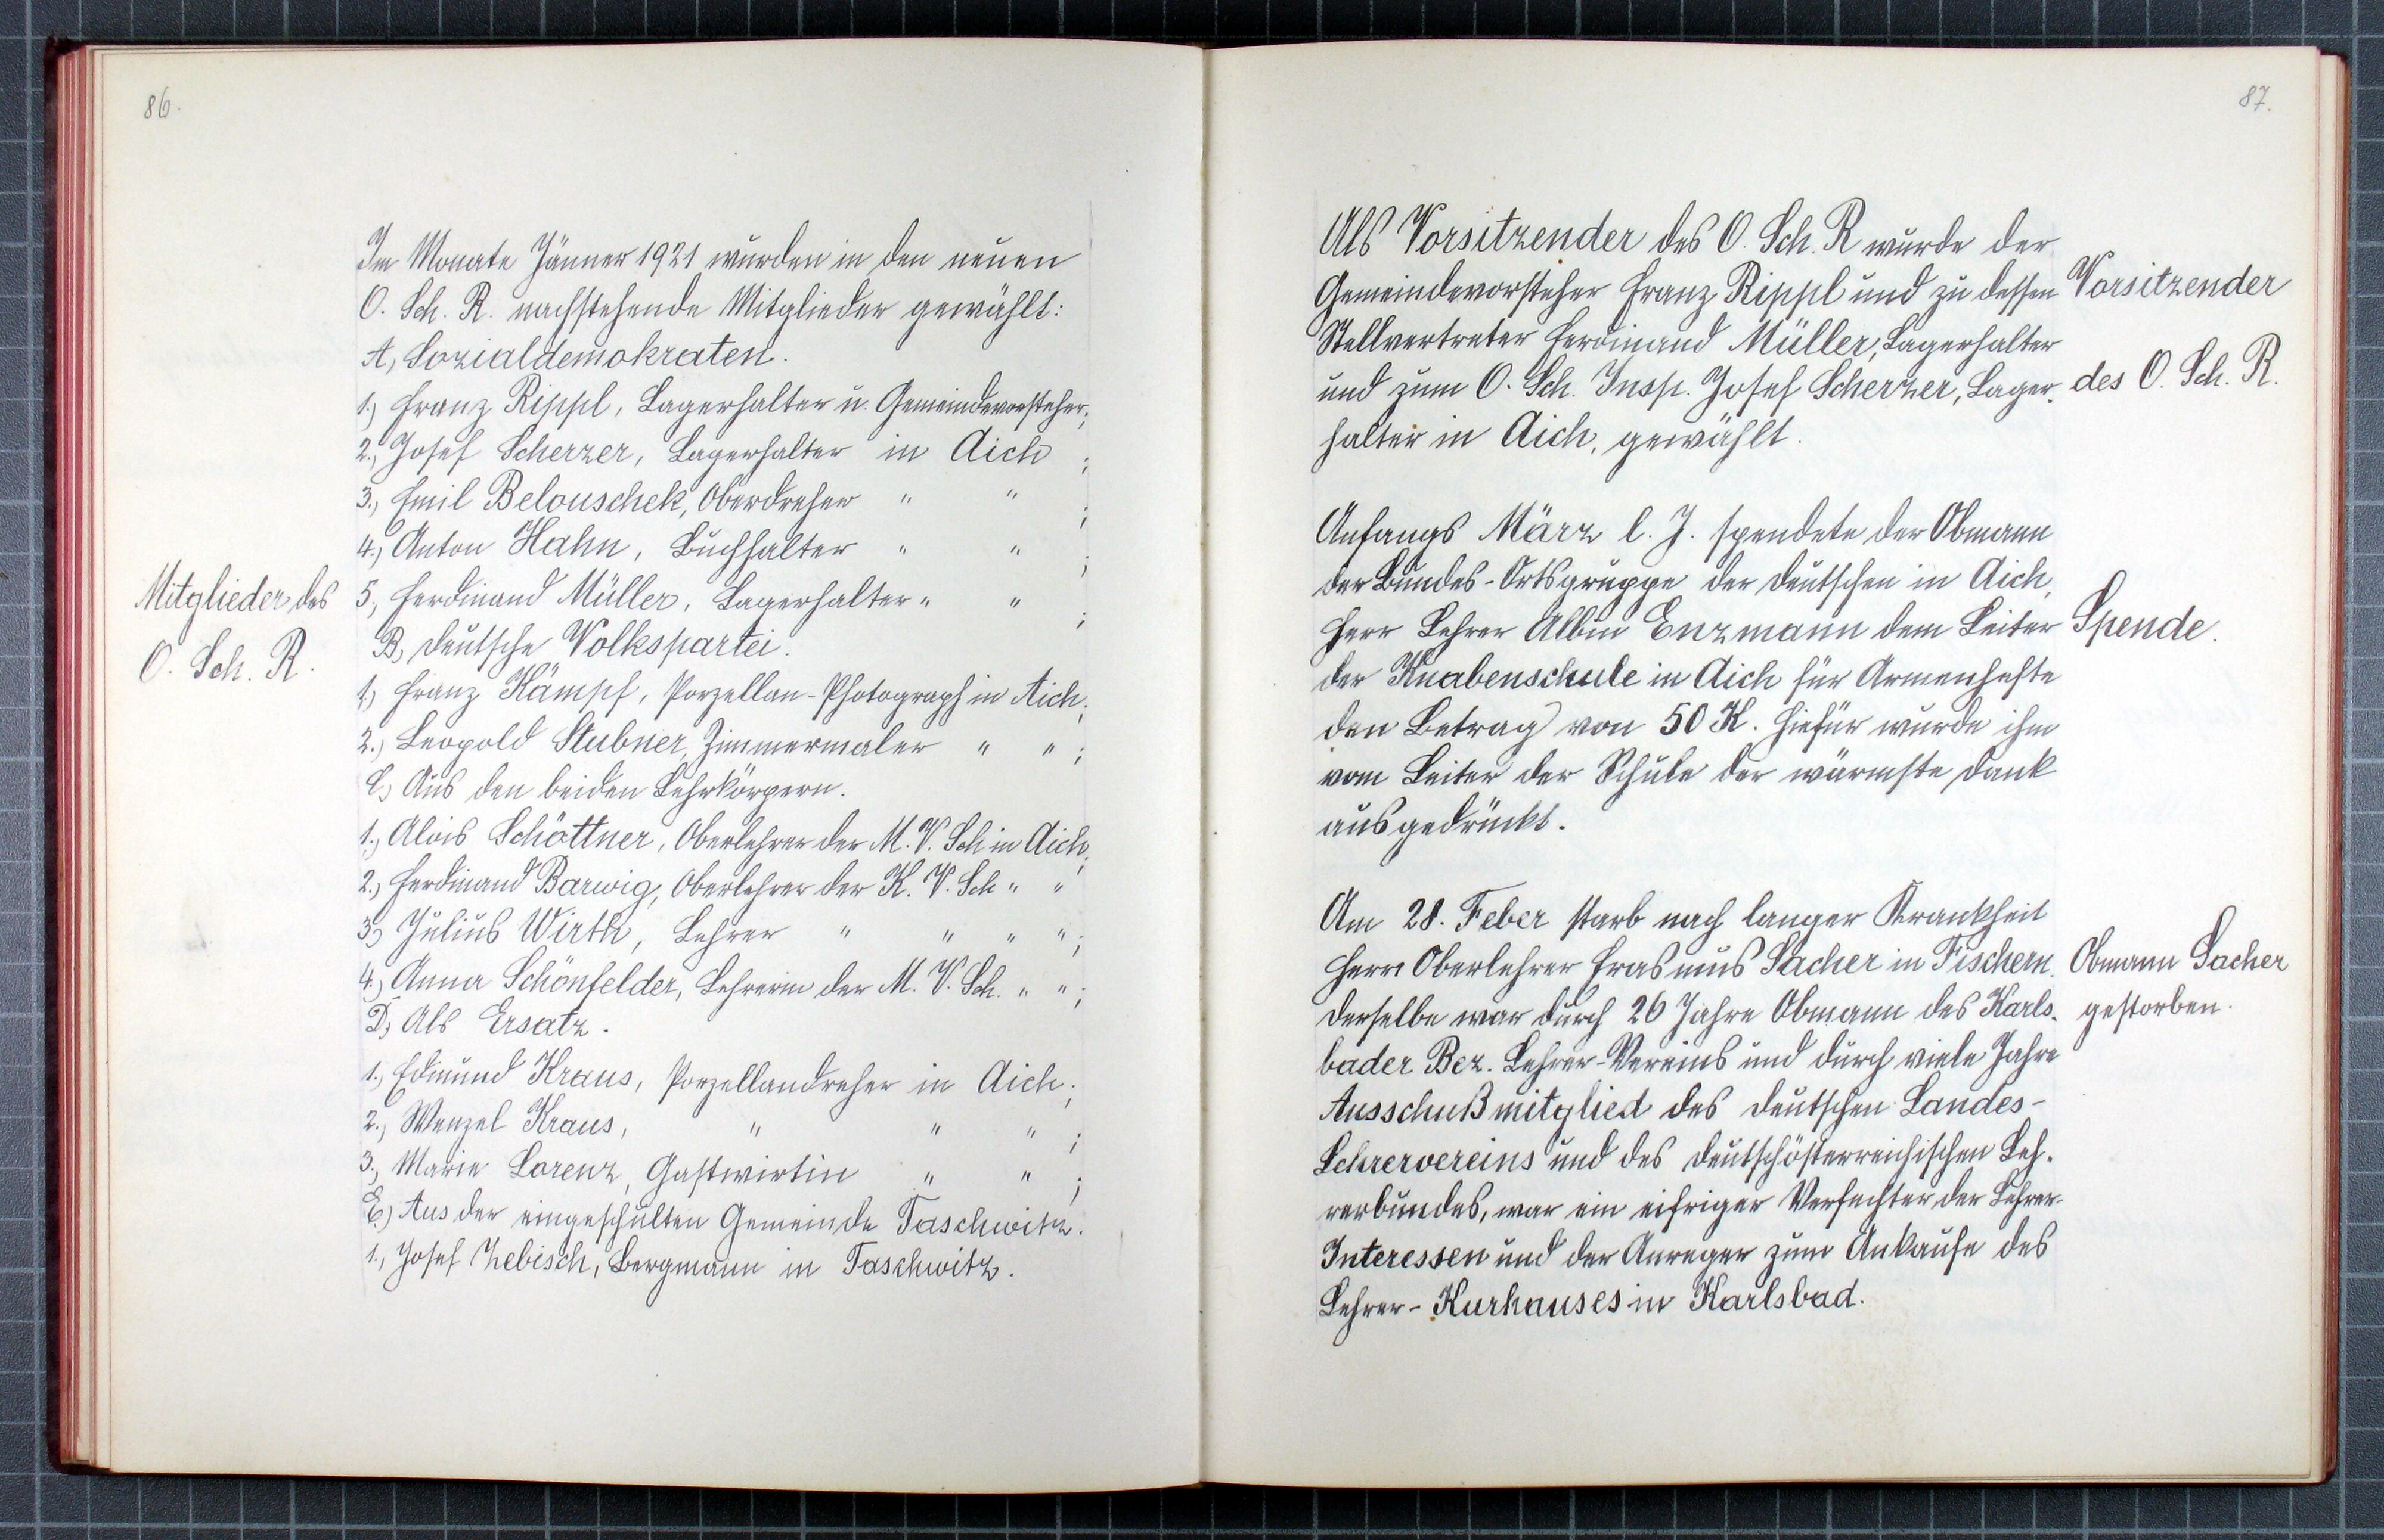 86.
Im Monate Jänner 1921 wurden in den neuen
O. Sch. R. nachstehende Mitglieder gewählt:
A, Sozialdemokraten.
1.) Franz Rippl, Lagerhalter u. Gemeindevorsteher;
2.) Josef Scherzer, Lagerhalter in Aich ;
3.) Emil Belouschek, Oberdreher " " ;
4.) Anton Hahn, Buchhalter " " ;
Mitglieder des
O. Sch. R.
5.) Ferdinand Müller, Lagerhalter " " ;
B, Deutsche Volkspartei.
1.) Franz Kämpf, Porzellan-Photograph in Aich;
2.) Leopold Stubner, Zimmermaler " " ;
C, Aus den beiden Lehrkörpern.
1.) Alois Schöttner, Oberlehrer der M. V. Sch in Aich;
2.) Ferdinand Barwig, Oberlehrer der K. V. Sch " "
3.) Julius Wirth, Lehrer " " " " ;
4.) Anna Schönfelder, Lehrerin der M. V. Sch. " " ;
D, Als Ersatz.
1.) Edmund Kraus, Porzellandreher in Aich;
2.) Wenzel Kraus, " " " ;
3.) Marie Lorenz, Gastwirtin " " ;
E) Aus der eingeschulten Gemeinde Taschwitz.
1.) Josef Zebisch, Bergmann in Taschwitz.
87.
Als Vorsitzender des O. Sch. R wurde der
Gemeindevorsteher Franz Rippl und zu dessen
Stellvertreter Ferdinand Müller, Lagerhalter
und zum O. Sch. Insp. Josef Scherzer, Lager-
halter in Aich, gewählt.
Vorsitzender
des O. Sch. R.
Anfangs März l. J. spendete der Obmann
der Bundes-Ortsgruppe der Deutschen in Aich,
Herr Lehrer Albin Enzmann dem Leiter
der Knabenschule in Aich für Armenhefte
den Betrag von 50 K. Hiefür wurde ihm
vom Leiter der Schule der wärmste Dank
ausgedrückt.
Spende.
Am 28. Feber starb nach langer Krankheit
Herr Oberlehrer Erasmus Sacher in Fischern.
Derselbe war durch 26 Jahre Obmann des Karls-
bader Bez. Lehrer-Vereins und durch viele Jahre
Ausschußmitglied des Deutschen Landes-
Lehrervereins und des Deutschösterreichischen Leh-
rerbundes, war ein eifriger Verfechter der Lehrer-
Interessen und der Anreger zum Ankaufe des
Lehrer-Kurhauses in Karlsbad.
Obmann Sacher
gestorben.